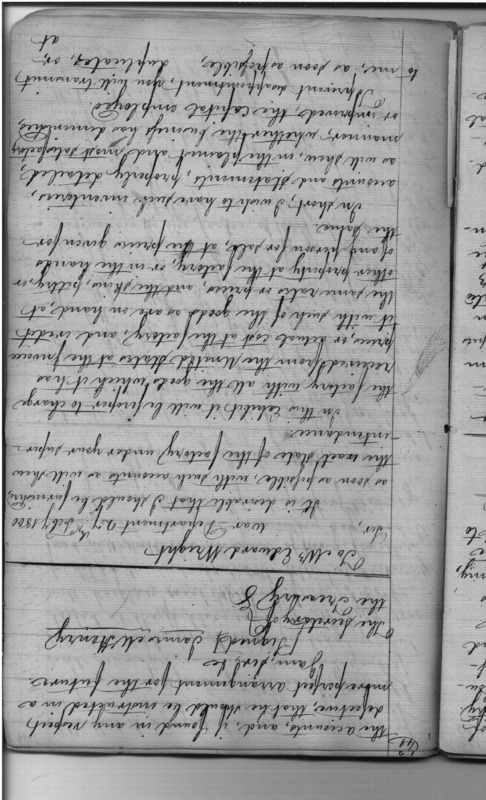 the accounts, and, if found in any respect
defective, that he should be instructed in a
more perfect arrangement for the future
I am, Sir, &c
(Signed) James McHenry
The Secretary of
the Treasury
To Mr Edward Wright
War Department 27 Feby 1800
Sir,
It is desirable that I should be furnished,
as soon as possible, with such accounts as will shew
the exact state of the factory under your super
-intendance.
In this exhibit it will be proper to charge
the factory with all the goods which it has
received from the United States at the invoice
prices, or actual cost at the factory, and credit
it with such of the goods as are on hand, at
the same rates or prices, and the skins, peltry, or
other property at the factory, or in the hands
of any person for sale at the prices given for
the same.
In short, I wish to have such inventories,
accounts and statements, properly detailed,
as will shew, in the plainest and most satisfactory
manner, whether the business has diminished,
or improved, the capital employed
To prevent disappointment, you will transmit
to me, as soon as possible, duplicates, or,
at